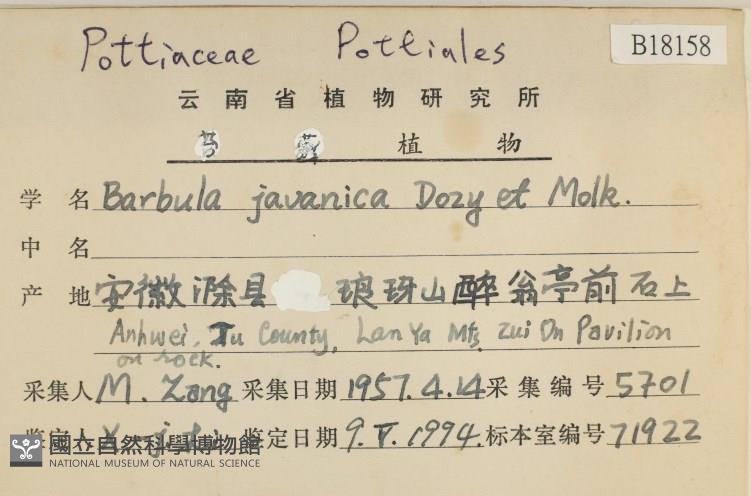 Pottiaceae Pottiales
B18158
云南省植物研究所
苔藓植物
学名 Barbula javanica Dozy et Molk.
中名
产地 安徽滁县 琅琊山醉翁亭前石上
Anhwei, Tu County, Lan Ya Mts, Zui On Pavilion
on rock.
采集人 M. Zang 采集日期 1957.4.14 采集编号 5701
鉴定人 鉴定日期 9.V.1994. 标本室编号 71922
國立自然科學博物館
NATIONAL MUSEUM OF NATURAL SCIENCE